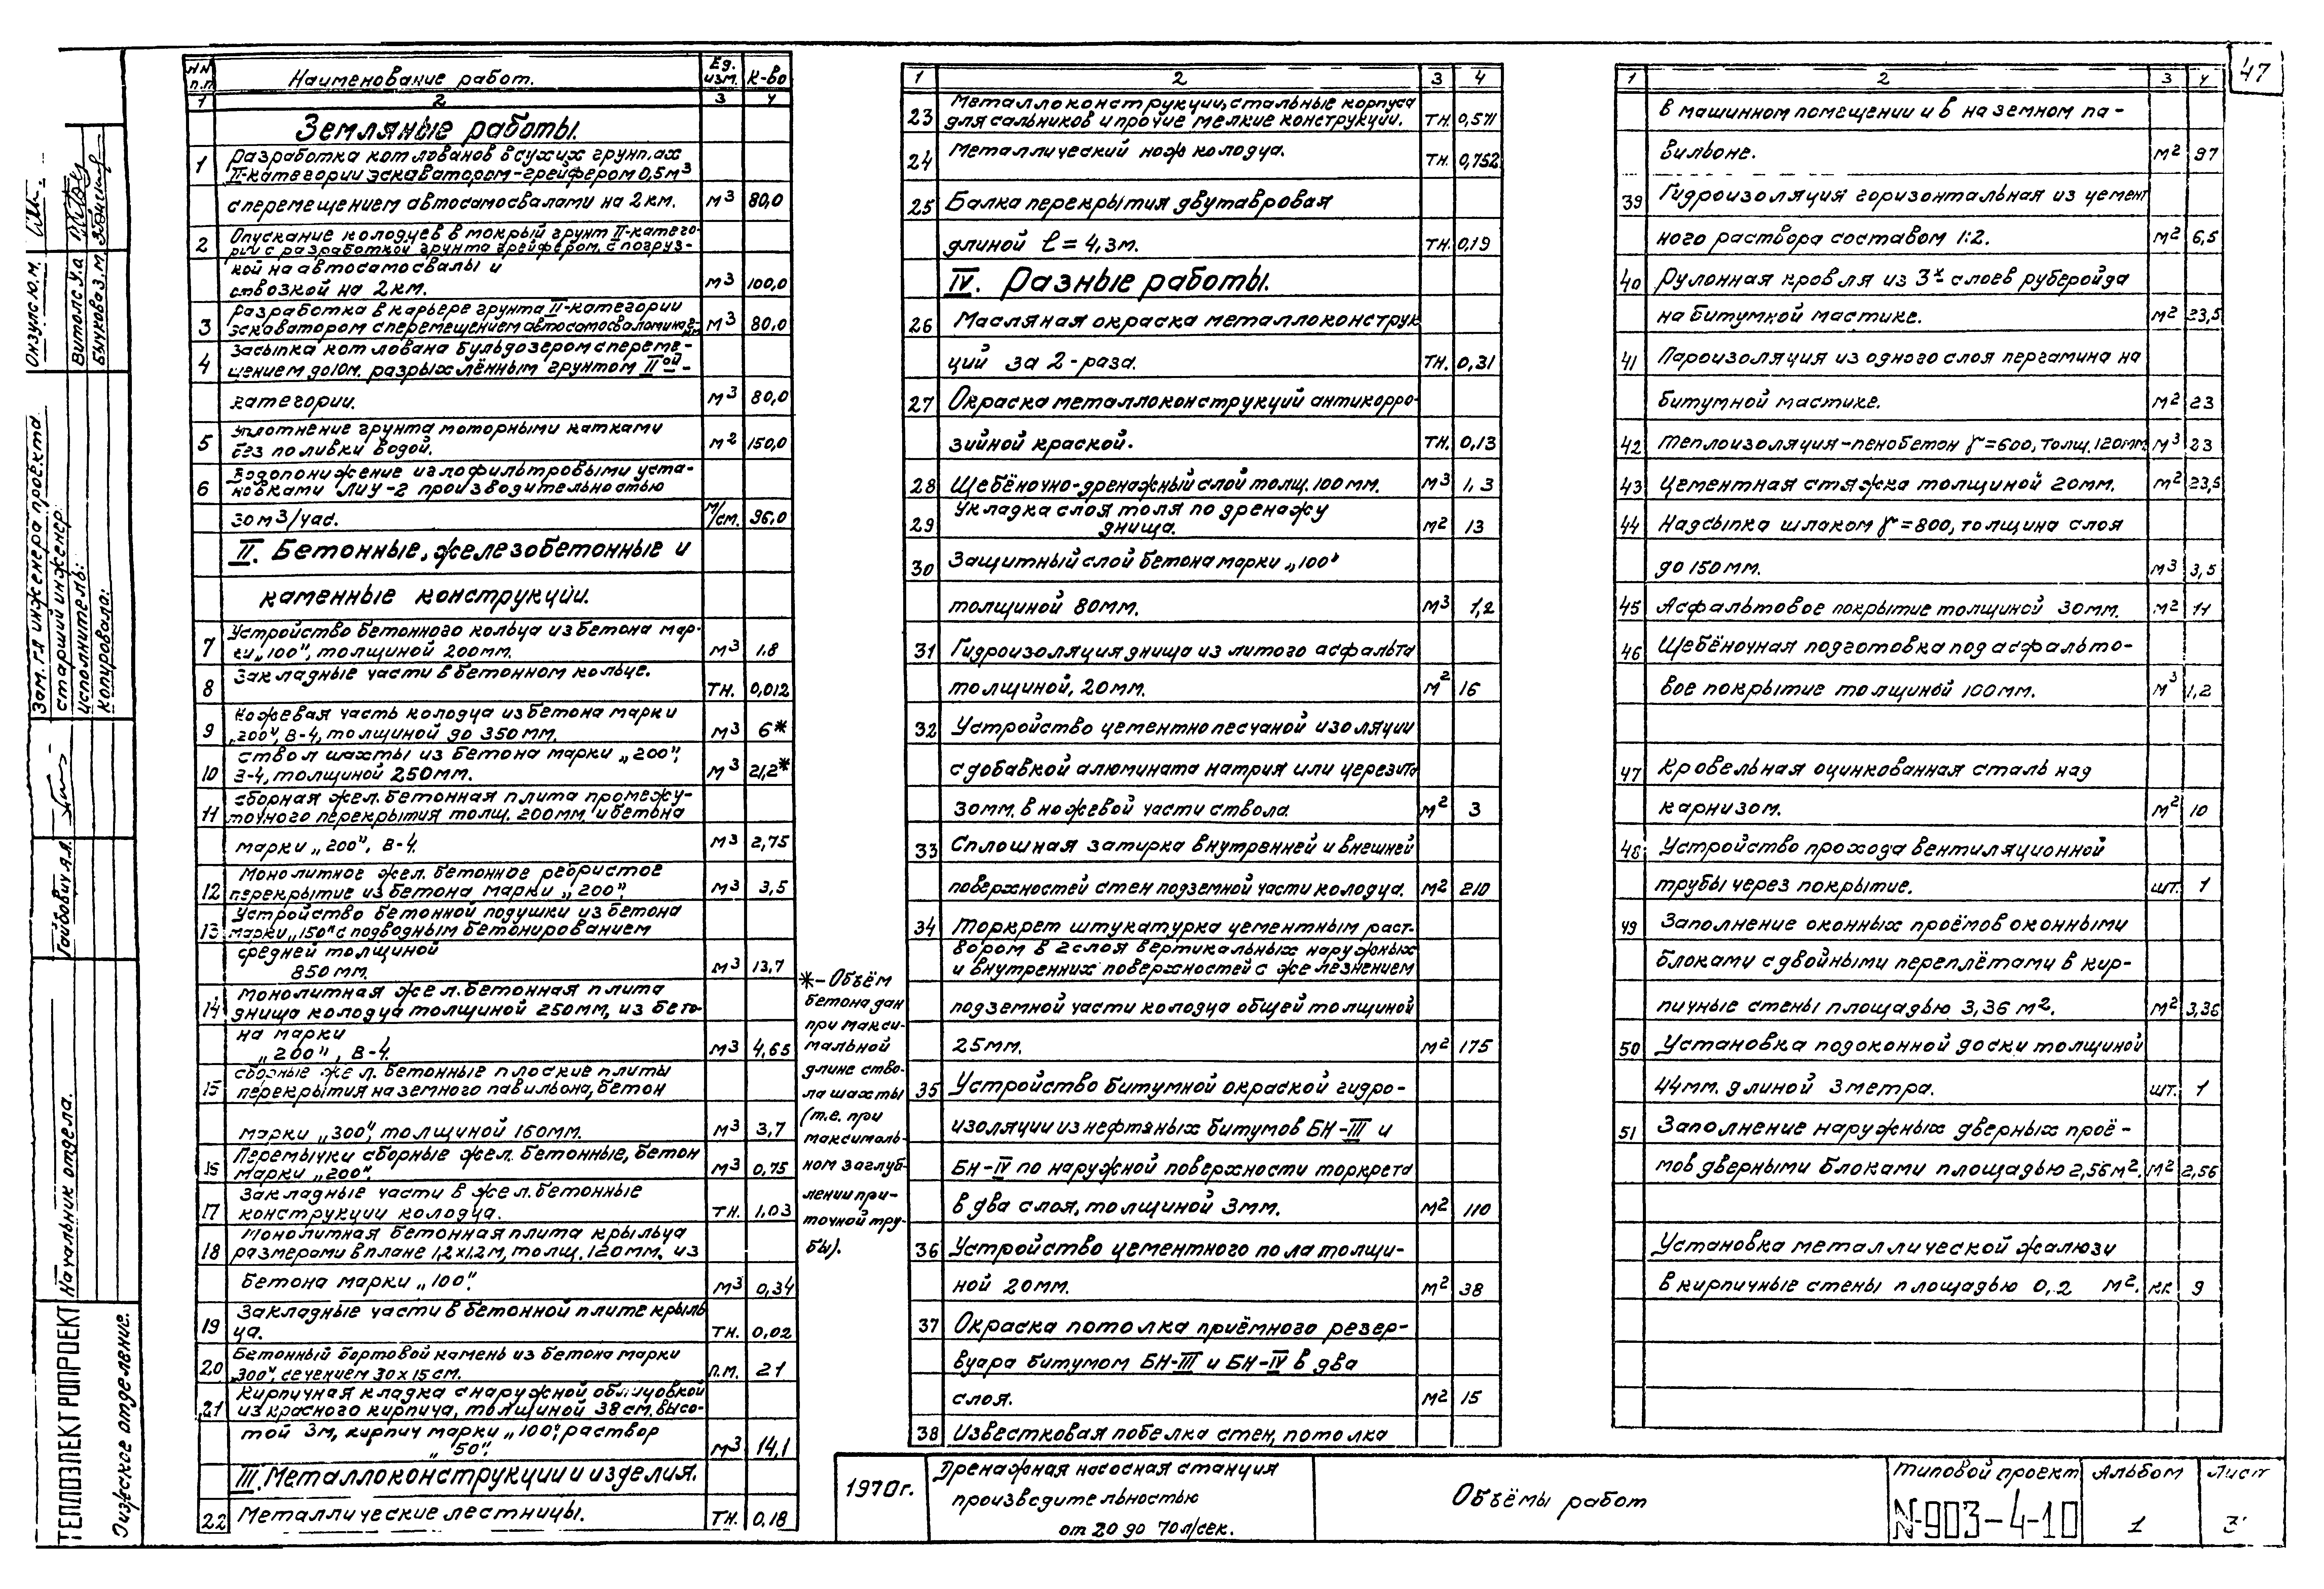 47
NN п.п Наименование работ. Ед. изм. К-во
1 2 3 4
Земляные работы.
1 Разработка котлованов в сухих грунтах
II-категории эскаватором-грейфером 0,5м3
с перемещением автосамосвалами на 2 км. м3 80,0
2 Опускание колодцев в мокрый грунт II-катего-
рии с разработкой грунта грейфером, с погруз-
кой на автосамосвалы и
с твозкой на 2 км. м3 100,0
3 Разработка в карьере грунта II-категории
эскаватором с перемещением автосамосвалами на 2км м3 80,0
4 Засыпка котлована бульдозером с переме-
щением до 10м. разрыхлённым грунтом IIой-
категории. м3 80,0
5 Уплотнение грунта моторными катками
без поливки водой. м2 150,0
6 Водопонижение иглофильтровыми уста-
новками ЛИУ-2 производительностью
30 м3/час. м/см. 96,0
II. Бетонные, железобетонные и
каменные конструкции.
7 Устройство бетонного кольца из бетона мар-
ки „100", толщиной 200мм. м3 1,8
8 Закладные части в бетонном кольце. тн. 0,012
9 Ножевая часть колодца из бетона марки
„200", В-4, толщиной до 350мм. м3 6*
10 Ствол шахты из бетона марки „200",
В-4, толщиной 250мм. м3 21,2*
11 Сборная жел.бетонная плита промежу-
точного перекрытия толщ. 200мм. и бетона
марки „200", В-4. м3 2,75
12 Монолитное жел. бетонное ребристое
перекрытие из бетона марки „200". м3 3,5
13 Устройство бетонной подушки из бетона
марки „150" с подводным бетонированием
средней толщиной
850мм. м3 13,7
14 Монолитная жел.бетонная плита
днища колодца толщиной 250мм, из бето-
на марки
„200", В-4. м3 4,65
15 Сборные жел. бетонные плоские плиты
перекрытия наземного павильона, бетон
марки „300", толщиной 160мм. м3 3,7
16 Перемычки сборные жел. бетонные, бетон
марки „200". м3 0,75
17 Закладные части в жел.бетонные
конструкции колодца. тн. 1,03
18 Монолитная бетонная плита крыльца
размерами в плане 1,2х1,2м, толщ. 120мм. из
бетона марки „100". м3 0,34
19 Закладные части в бетонной плите крыль
ца. тн. 0,02
20 Бетонный бортовой камень из бетона марки
„300", сечением 30х15см. п.м. 21
21 Кирпичная кладка с наружной облицовкой
из красного кирпича, толщиной 38см. высо-
той 3м, кирпич марки „100", раствор
„50". м3 14,1
III. Металлоконструкции и изделия.
22 Металлические лестницы. тн. 0,18
*-Объём
бетона дан
при макси-
мальной
длине ство-
ла шахты
(т.е. при
максималь-
ном заглуб-
лении при-
точной тру-
бы).
1 2 3 4
23 Металлоконструкции, стальные корпуса
для сальников и прочие мелкие конструкции. тн. 0,571
24 Металлический нож колодца. тн. 0,752
25 Балка перекрытия двутавровая
длиной ℓ = 4,3м. тн. 0,19
IV. Разные работы.
26 Масляная окраска металлоконструк
ций за 2-раза. тн. 0,31
27 Окраска металлоконструкций антикорро-
зийной краской. тн. 0,13
28 Щебёночно-дренажный слой толщ. 100мм. м3 1,3
29 Укладка слоя толя по дренажу
днища. м2 13
30 Защитный слой бетона марки „100"
толщиной 80мм. м3 1,2
31 Гидроизоляция днища из литого асфальта
толщиной, 20мм. м2 16
32 Устройство цементно песчаной изоляции
с добавкой алюмината натрия или церезита
30мм. в ножевой части ствола. м2 3
33 Сплошная затирка внутренней и внешней
поверхностей стен подземной части колодца. м2 210
34 Торкрет штукатурка цементным раст-
вором в 2 слоя вертикальных наружных
и внутренних поверхностей с железнением
подземной части колодца общей толщиной
25мм. м2 175
35 Устройство битумной окраской гидро-
изоляции из нефтяных битумов БН-III и
БН-IV по наружной поверхности торкрета
в два слоя, толщиной 3мм. м2 110
36 Устройство цементного пола толщи-
ной 20мм. м2 38
37 Окраска потолка приёмного резер-
вуара битумом БН-III и БН-IV в два
слоя. м2 15
38 Известковая побелка стен, потолка
1 2 3 4
в машинном помещении и в наземном па-
вильоне. м2 97
39 Гидроизоляция горизонтальная из цемент
ного раствора составом 1:2. м2 6,5
40 Рулонная кровля из 3х слоев рубероида
на битумной мастике. м2 23,5
41 Пароизоляция из одного слоя пергамина на
битумной мастике. м2 23
42 Теплоизоляция-пенобетон γ=600, толщ. 120мм. м3 23
43 Цементная стяжка толщиной 20мм. м2 23,5
44 Надсыпка шлаком γ=800, толщина слоя
до 150мм. м3 3,5
45 Асфальтовое покрытие толщиной 30мм. м2 11
46 Щебёночная подготовка под асфальто-
вое покрытие толщиной 100мм. м3 1,2
47 Кровельная оцинкованная сталь над
карнизом. м2 10
48 Устройство прохода вентиляционной
трубы через покрытие. шт. 1
49 Заполнение оконных проёмов оконными
блоками с двойными переплётами в кир-
пичные стены площадью 3,36 м2. м2 3,36
50 Установка подоконной доски толщиной
44мм. длиной 3 метра. шт. 1
51 Заполнение наружных дверных проё-
мов дверными блоками площадью 2,56м2. м2 2,56
Установка металлической жалюзи
в кирпичные стены площадью 0,2 м2. кг. 9
1970г.
Дренажная насосная станция
производительностью
от 20 до 70 л/сек.
Объёмы работ
Типовой проект
N-903-4-10
Альбом
1
Лист
3
ТЕПЛОЭЛЕКТРОПРОЕКТ
Рижское отделение.
Начальник отдела. Гайбович А.А.
Зам. гл инженера проекта Онзулс Ю.М.
Старший инженер
Исполнитель: Витолс У.а
Копировала: Бычкова З.М